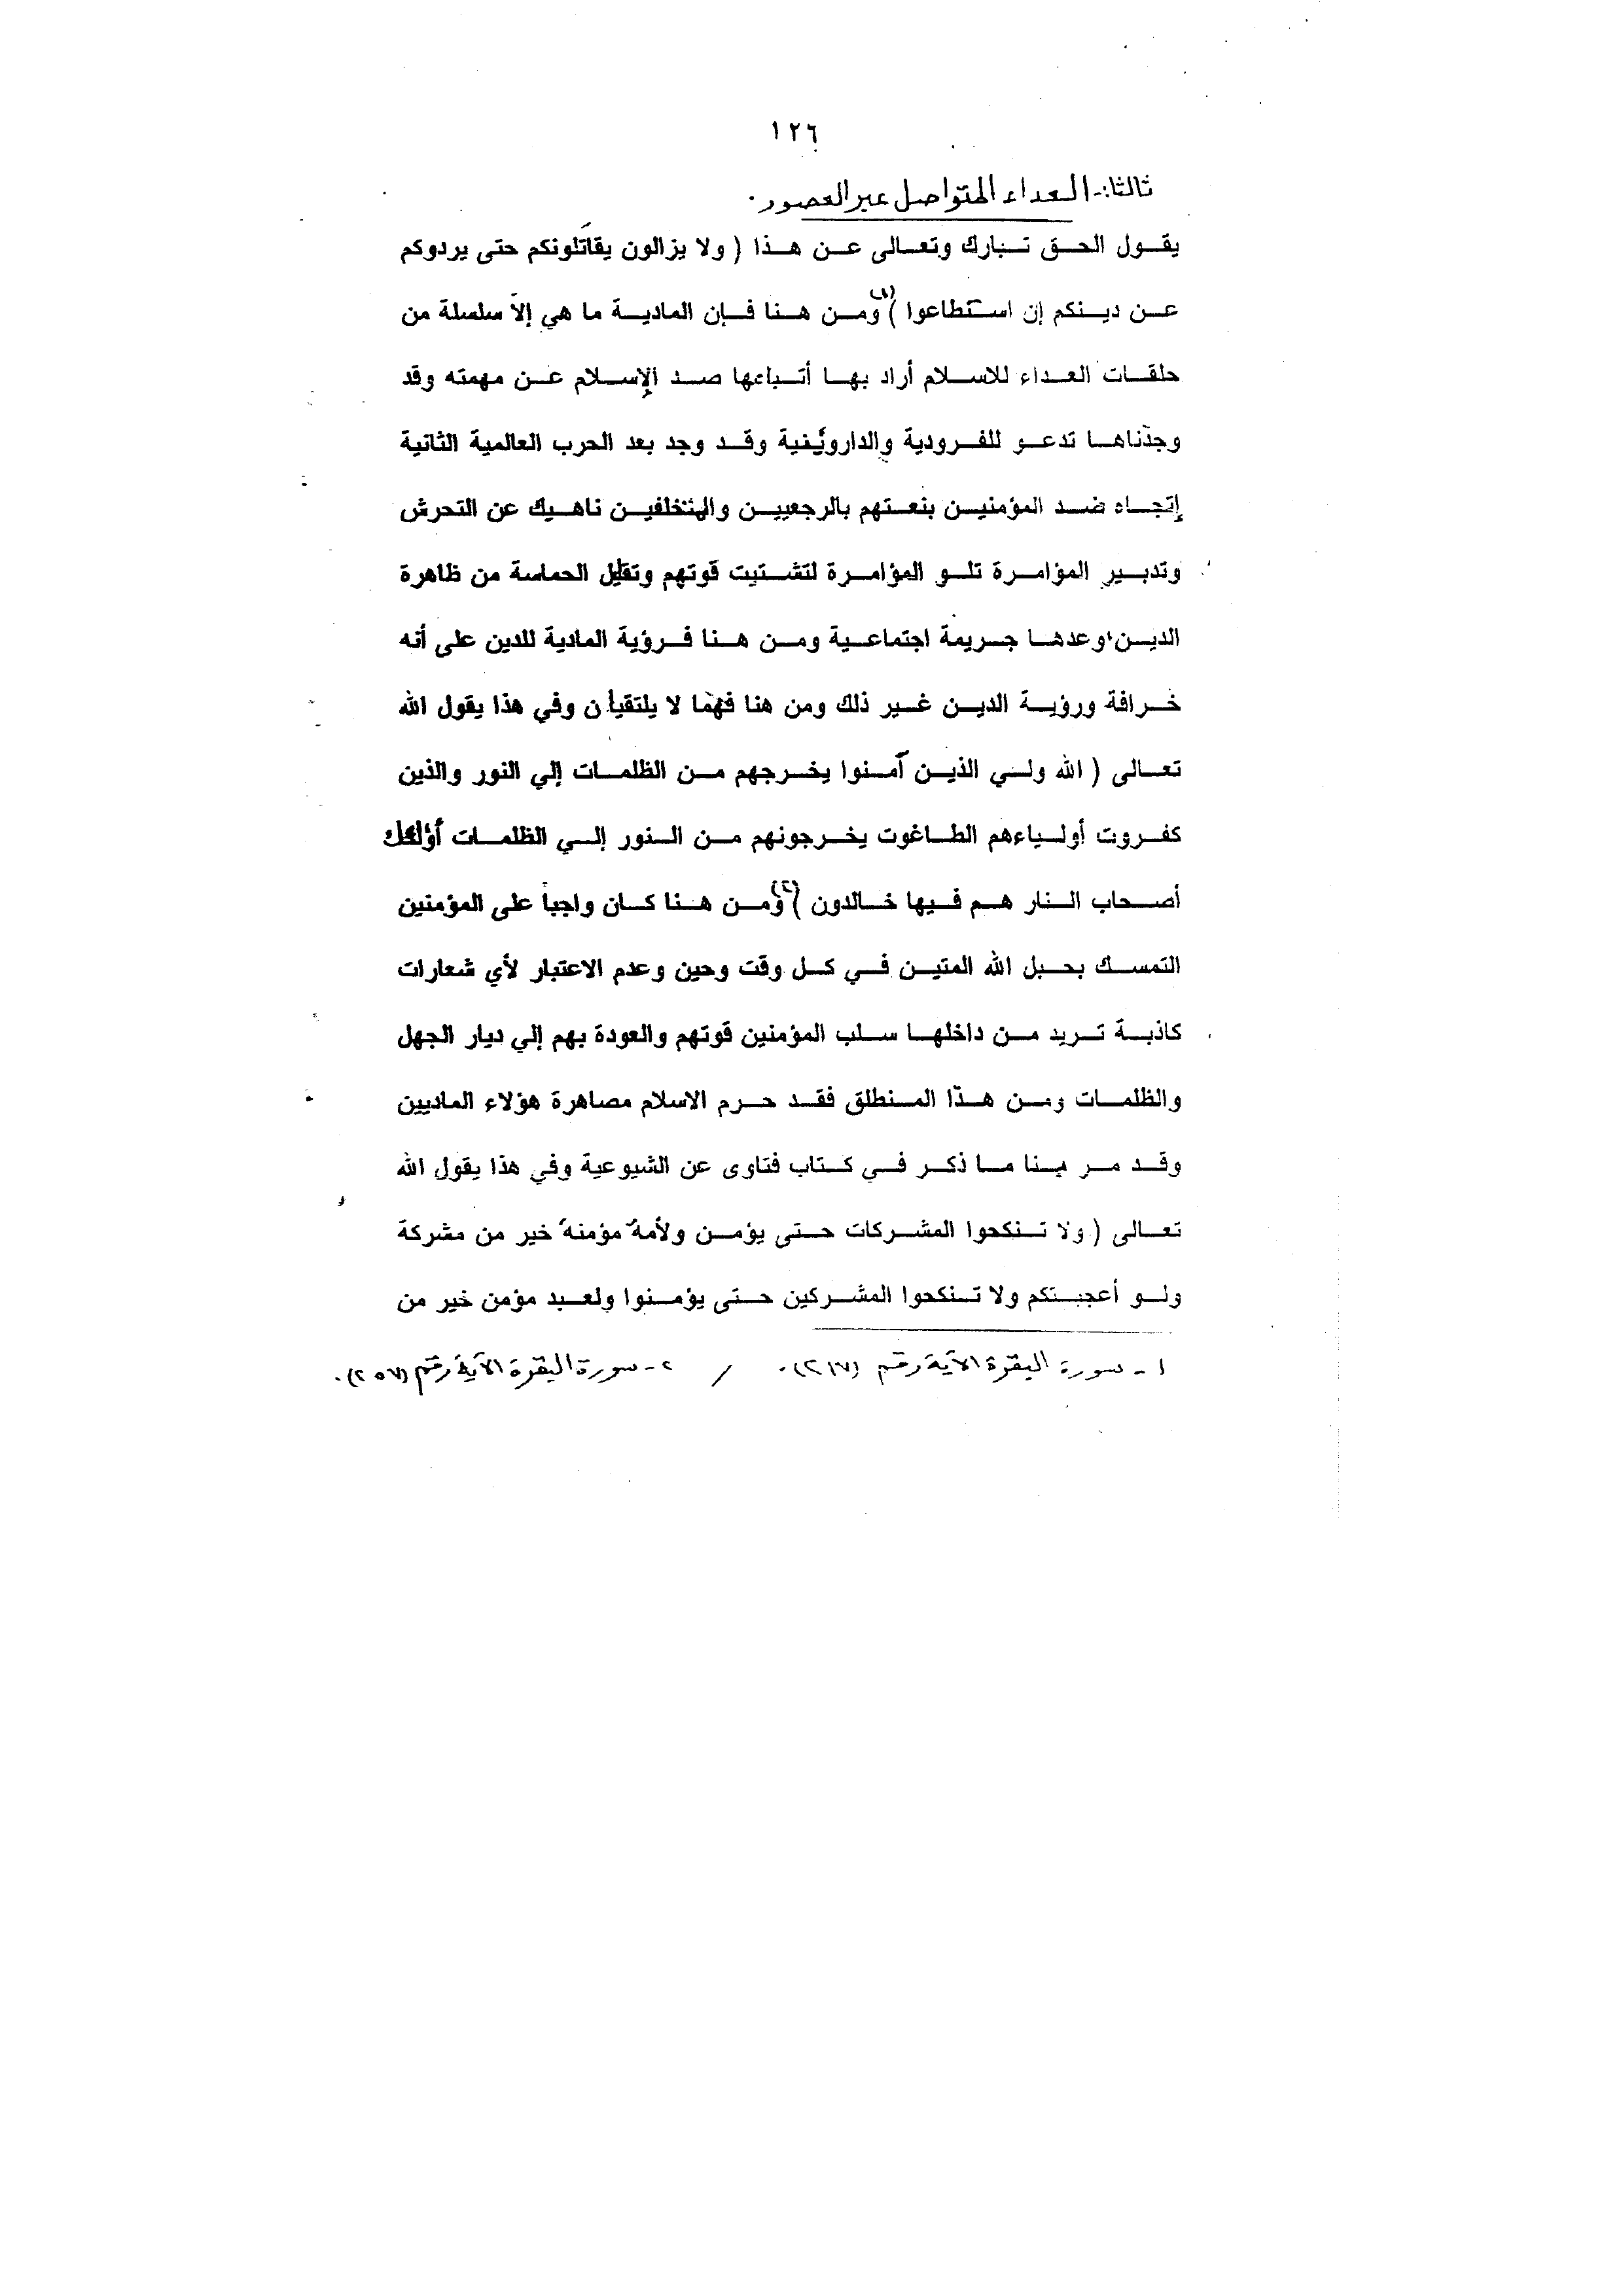 ١٢٦
ثالثا:- العداء المتواصل عبر العصور.
يقول الحق تبارك وتعالى عن هذا ( ولا يزالون يقاتلونكم حتى يردوكم
عن دينكم إن استطاعوا )(١) ومن هنا فإن المادية ما هي إلا سلسلة من
حلقات العداء للاسلام أراد بها أتباعها صد الإسلام عن مهمته وقد
وجدناها تدعو للفرودية والداروينية وقد وجد بعد الحرب العالمية الثانية
إتجاه ضد المؤمنين بنعتهم بالرجعيين والمتخلفين ناهيك عن التحرش
وتدبير المؤامرة تلو المؤامرة لتشتيت قوتهم وتقليل الحماسة من ظاهرة
الدين وعدها جريمة اجتماعية ومن هنا فرؤية المادية للدين على أنه
خرافة ورؤية الدين غير ذلك ومن هنا فهما لا يلتقيان وفي هذا يقول الله
تعالى ( الله ولي الذين آمنوا يخرجهم من الظلمات إلي النور والذين
كفروت أولياءهم الطاغوت يخرجونهم من النور إلي الظلمات أولئك
أصحاب النار هم فيها خالدون )(٢) ومن هنا كان واجبا على المؤمنين
التمسك بحبل الله المتين في كل وقت وحين وعدم الاعتبار لأي شعارات
كاذبة تريد من داخلها سلب المؤمنين قوتهم والعودة بهم إلي ديار الجهل
والظلمات ومن هذا المنطلق فقد حرم الاسلام مصاهرة هؤلاء الماديين
وقد مر بنا ما ذكر في كتاب فتاوى عن الشيوعية وفي هذا يقول الله
تعالى ( ولا تنكحوا المشركات حتى يؤمن ولأمة مؤمنة خير من مشركة
ولو أعجبتكم ولا تنكحوا المشركين حتى يؤمنوا ولعبد مؤمن خير من
١- سورة البقرة الآية رقم (٢١٧). / ٢- سورة البقرة الآية رقم (٢٥٧).